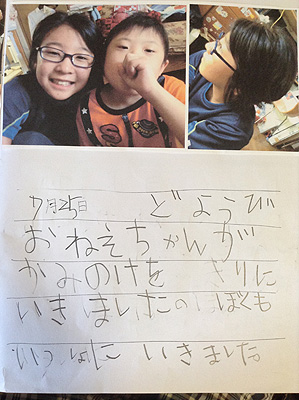 7月25日 どようび
おねえちゃんが
かみのけを きりに
いきましたのぼくも
いっしょに いきました。